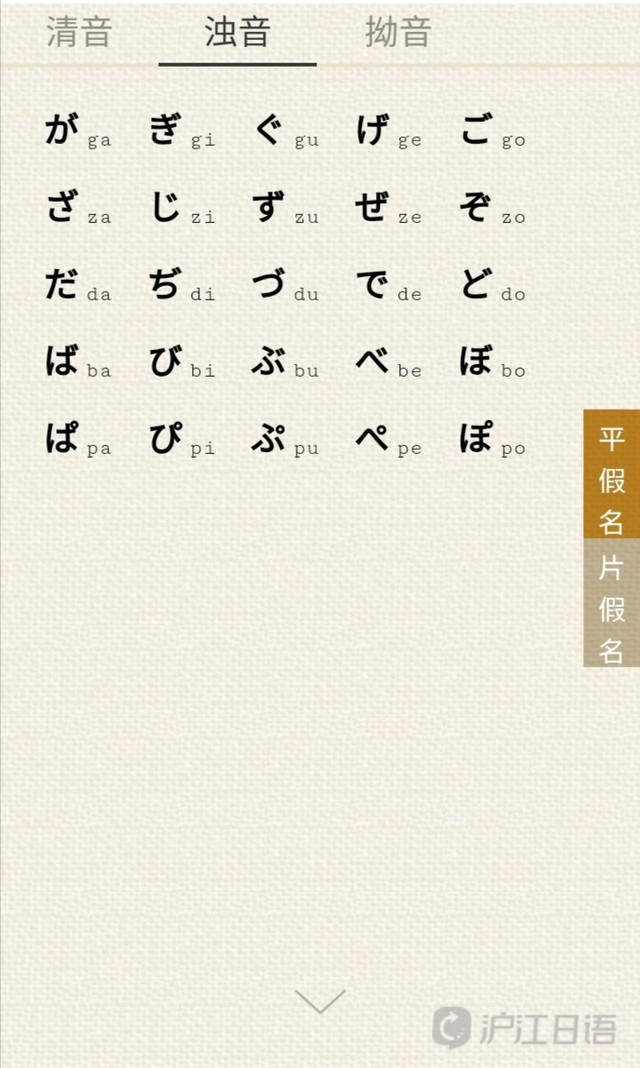 清音 浊音 拗音
が ga ぎ gi ぐ gu げ ge ご go
ざ za じ zi ず zu ぜ ze ぞ zo
だ da ぢ di づ du で de ど do
ば ba び bi ぶ bu べ be ぼ bo
ぱ pa ぴ pi ぷ pu ぺ pe ぽ po
平假名
片假名
沪江日语